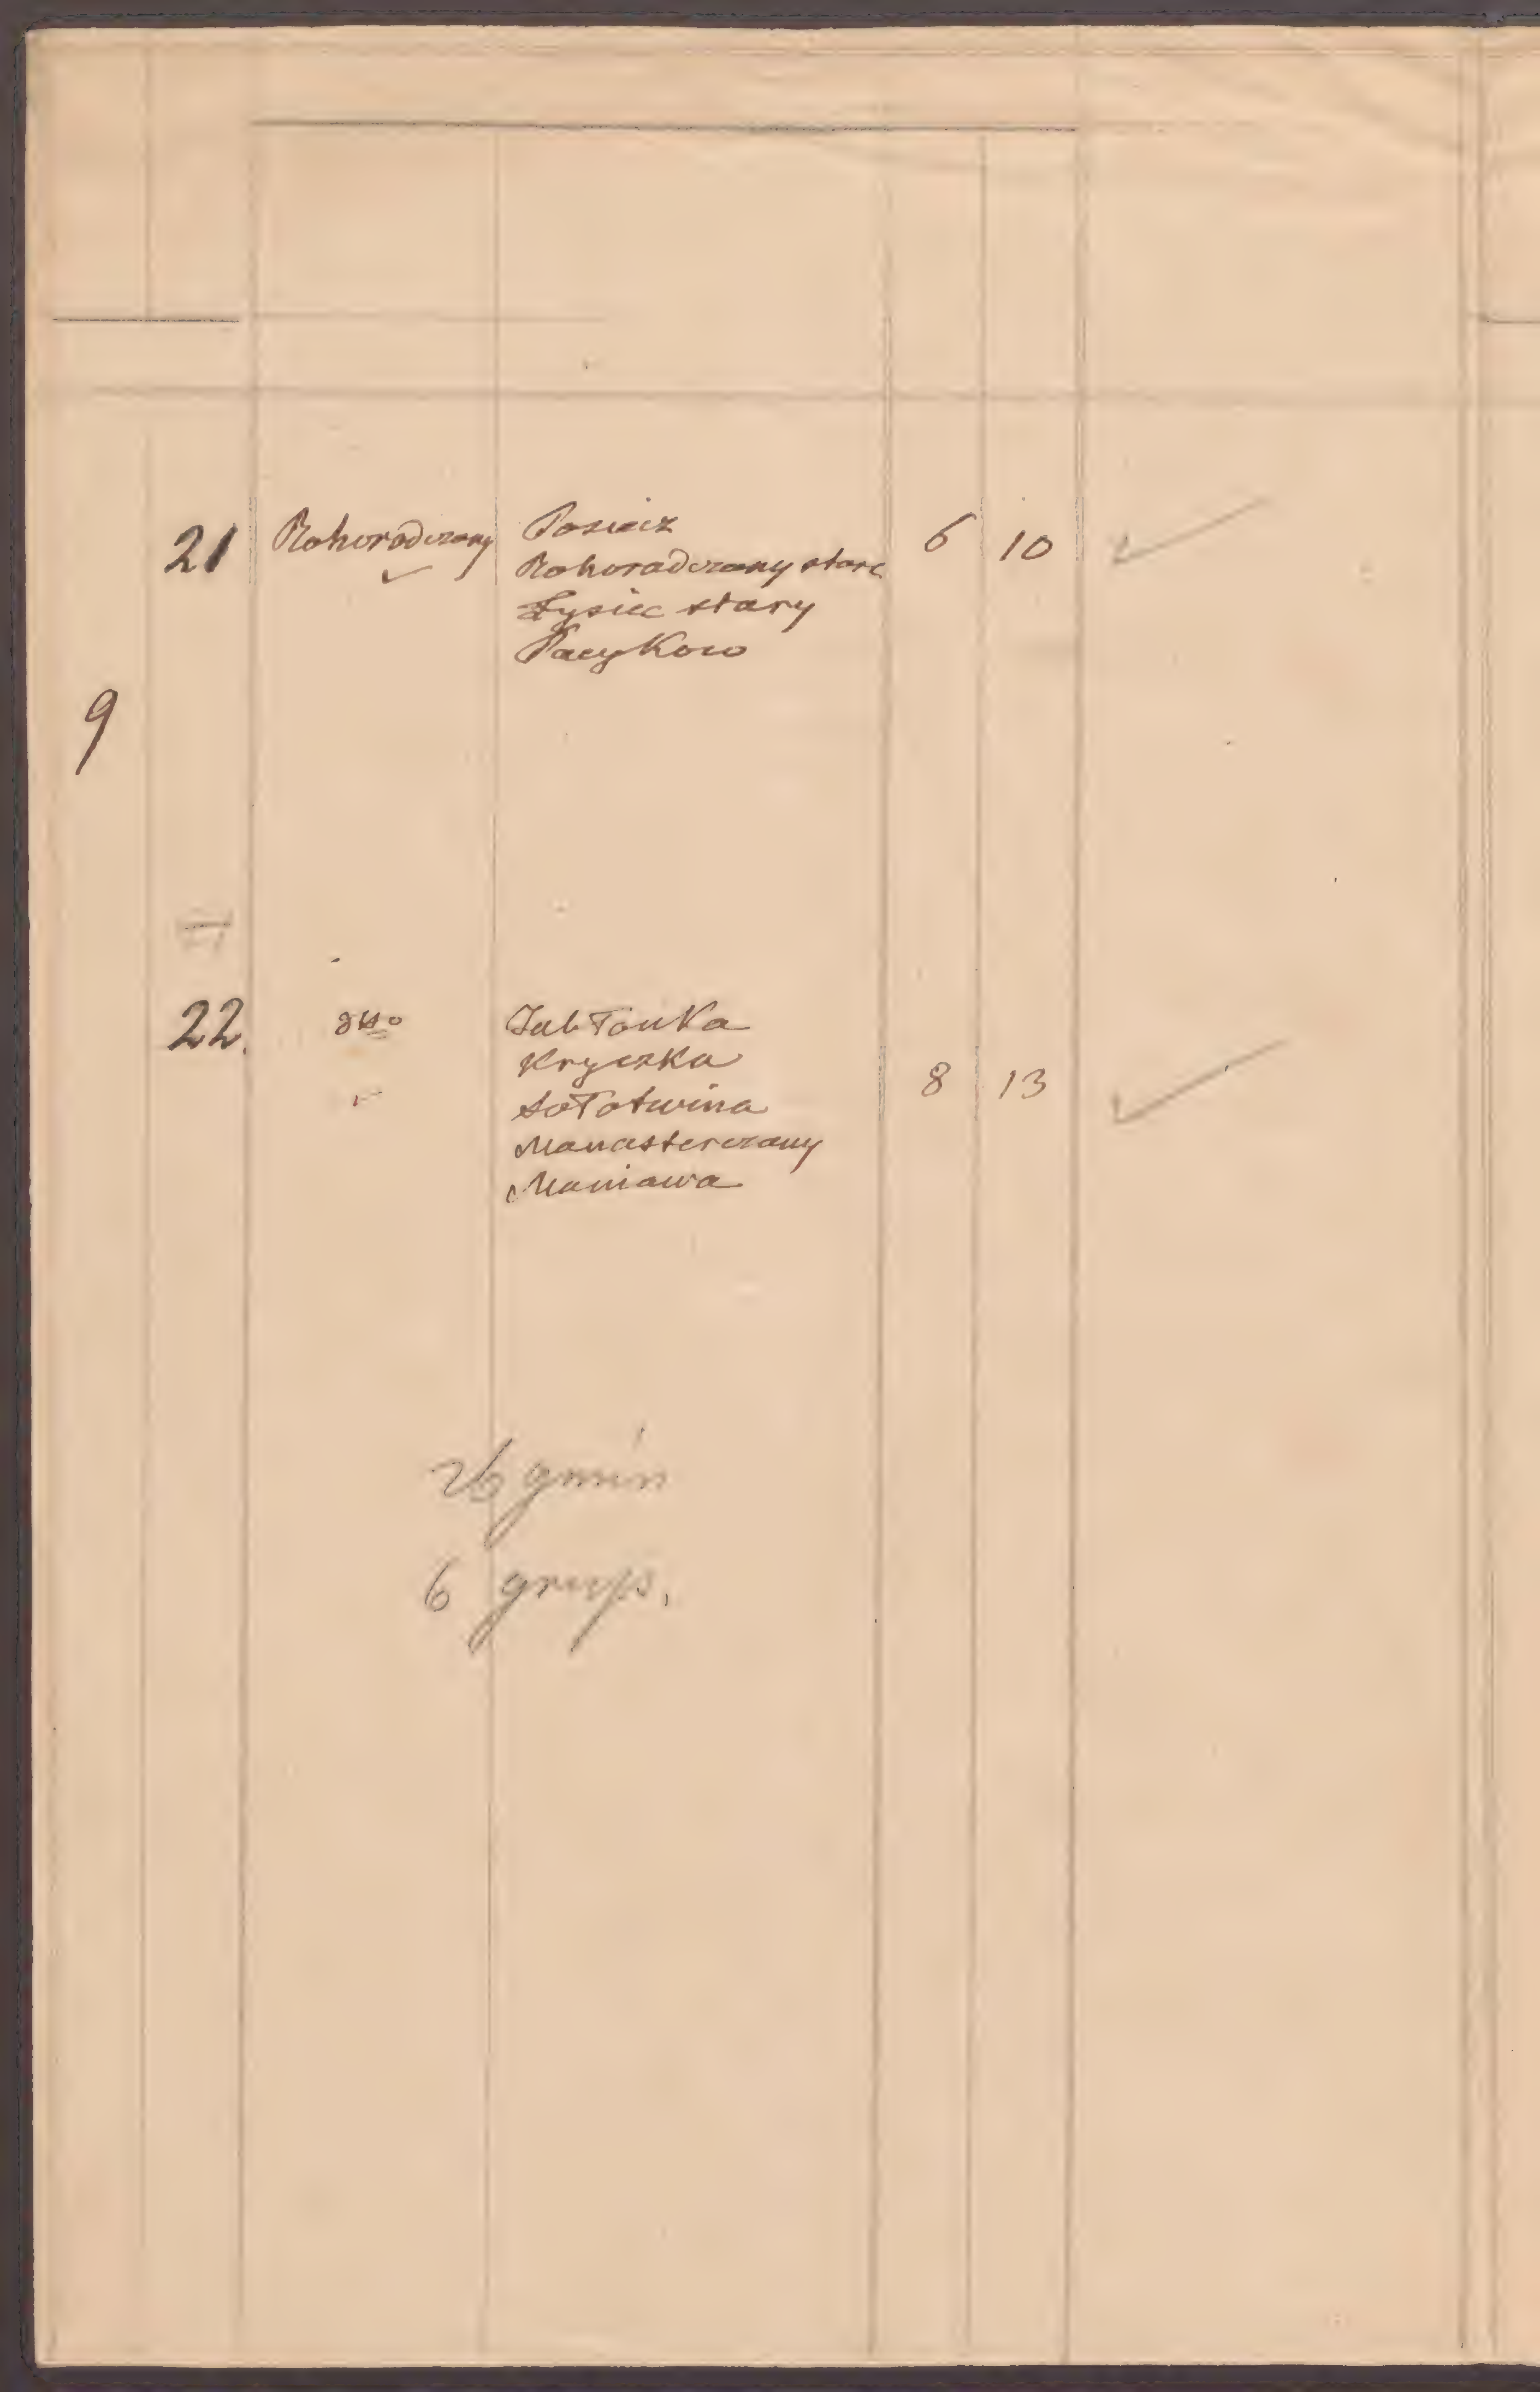 21 Bohorodczany Posiecz 6 10 ✓
✓ Bohorodczany stare
Łysiec stary
Pacykow
9
22. dtto Jabłonka
Kryczka 8 13 ✓
✓ Sołotwina
Manasterczany
Maniawa
26 gmin
6 grup.